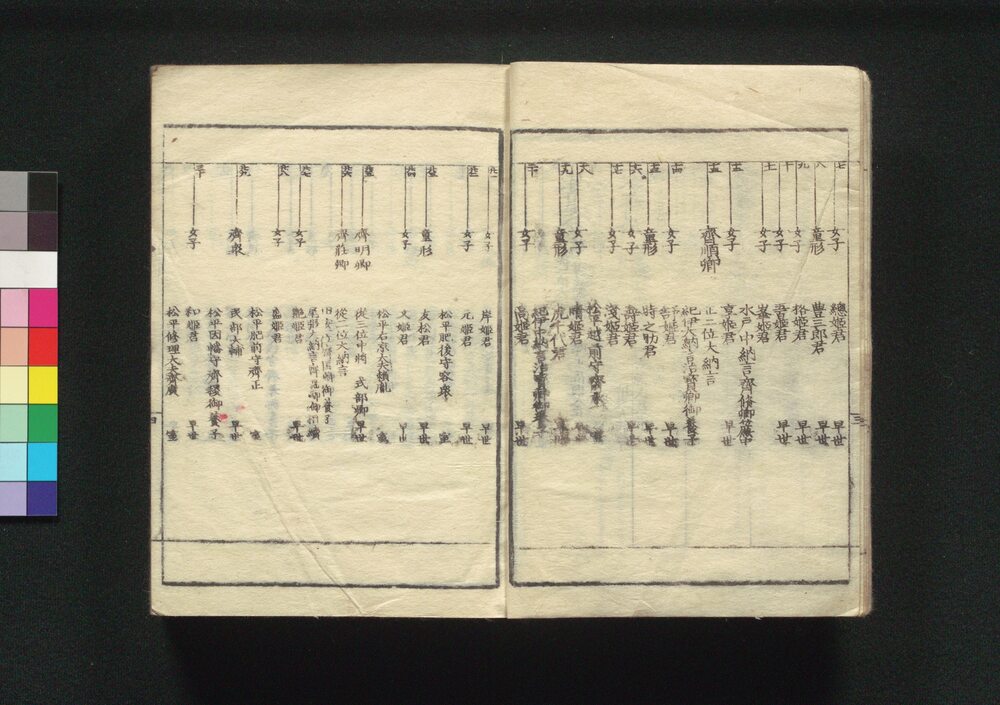 女子 總姫君 早世
童形 豊三郎君 早世
女子 格姫君 早世
女子 吾姫君 早世
女子 峯姫君
水戸中納言齊脩卿簾中
女子 亨姫君 早世
齊順卿 正二位大納言
紀伊大納言治寶卿御養子
女子 早世
童形 時之助君 早世
女子 壽姫君 早世
女子 淺姫君
松平越前守齊承室
女子 晴姫君 早世
童形 虎千代君 早世
紀伊中納言治寶卿御養子
女子 高姫君 早世
三
女子 岸姫君 早世
女子 元姫君 早世
松平肥後守容衆 室
童形 友松君 早世
女子 文姫君
松平右京大夫頼胤 室
齊明卿 從三位中將 式部卿 早世
齊莊卿 從二位大納言
御養子
尾張大納言齊温卿御相續
女子 艷姫君 早世
女子 盛姫君
松平肥前守齊正 室
齊衆 民部大輔 早世
松平因幡守齊稷御養子
女子 和姫君 早世
松平修理大夫齊廣 室
四